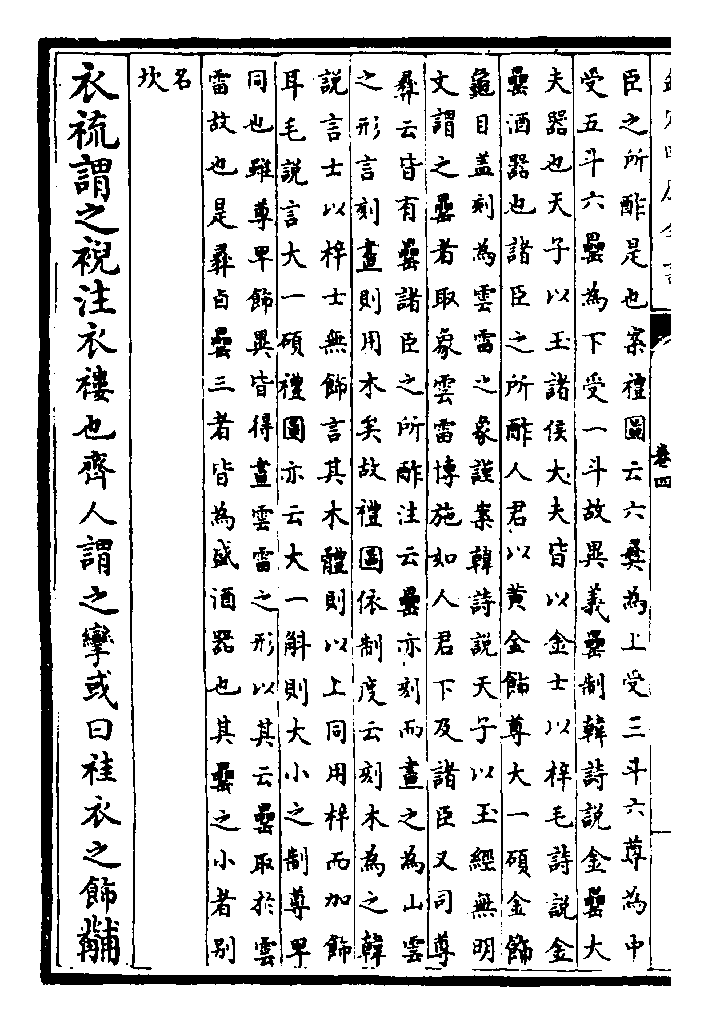 卷四
臣之所酢是也案禮圖云六彝為上受三斗六尊為中
受五斗六罍為下受一斗故異義罍制韓詩說金罍大
夫器也天子以玉諸侯大夫皆以金士以梓毛詩說金
罍酒器也諸臣之所酢人君以黄金飾尊大一碩金飾
龜目盖刻為雲雷之象謹案韓詩說天子以玉經無明
文謂之罍者取象雲雷博施如人君下及諸臣又司尊
彝云皆有罍諸臣之所酢注云罍亦刻而畫之為山雲
之形言刻畫則用木矣故禮圖依制度云刻木為之韓
說言士以梓士無飾言其木體則以上同用梓而加飾
耳毛說言大一碩禮圖亦云大一斛則大小之制尊卑
同也雖尊卑飾異皆得畫雲雷之形以其云罍取於雲
雷故也是彝卣罍三者皆為盛酒器也其罍之小者别
名
坎
衣裗謂之䘽注衣褸也齊人謂之攣或曰袿衣之飾黼